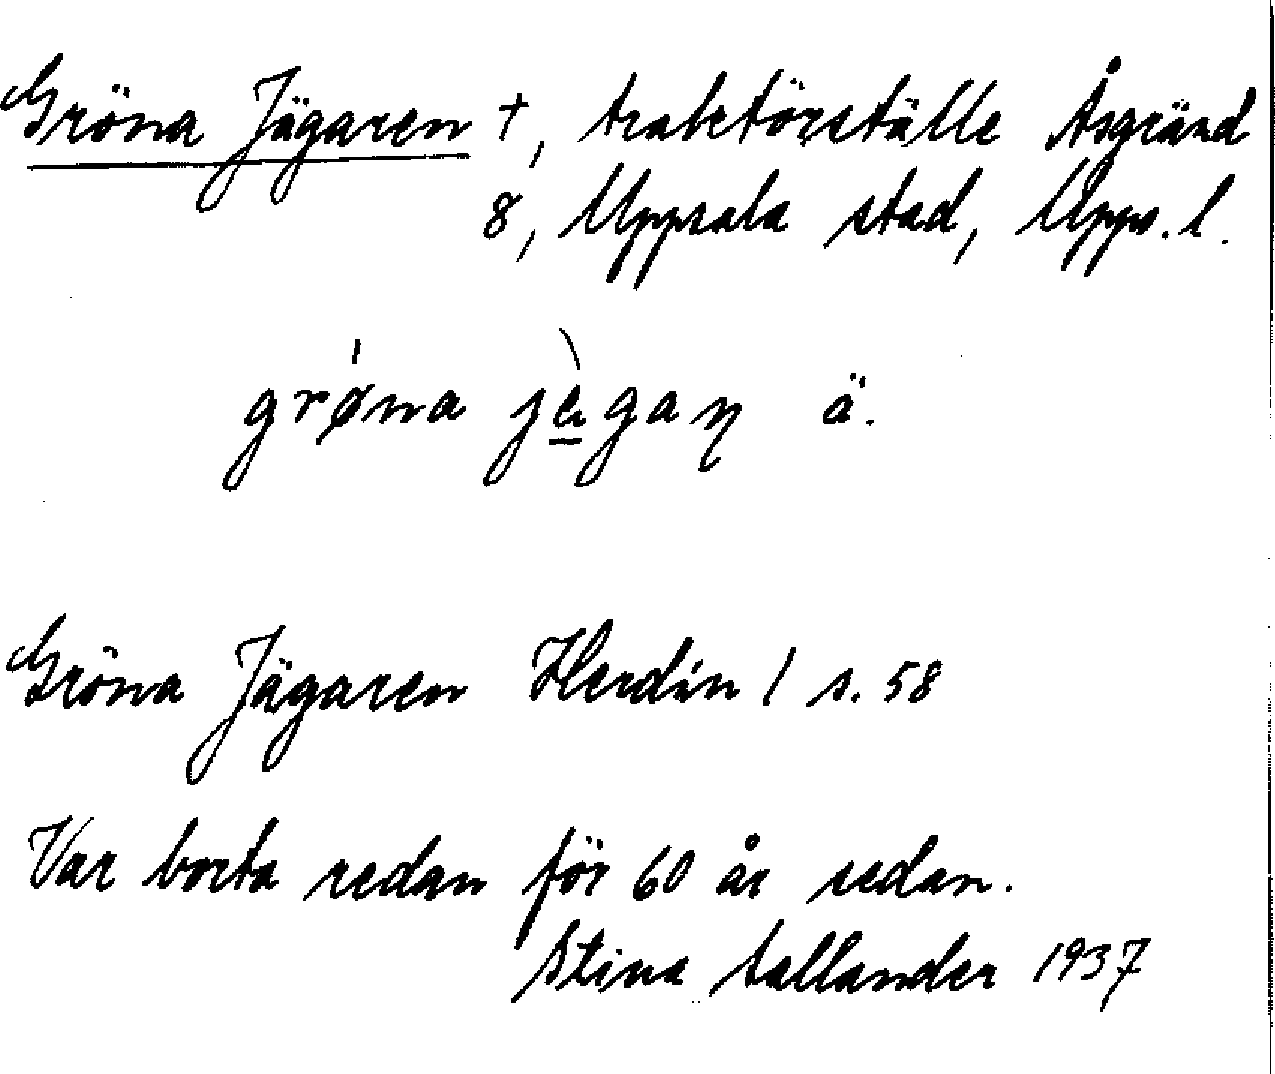 Gröna Jägaren †, traktörställe Åsgränd
8, Uppsala stad, Upps. l.
grø̍na jɛ̀gaɳ ä.
Gröna Jägaren Herdin 1 s. 58
Var borta redan för 60 år sedan.
Stina Sallander 1937